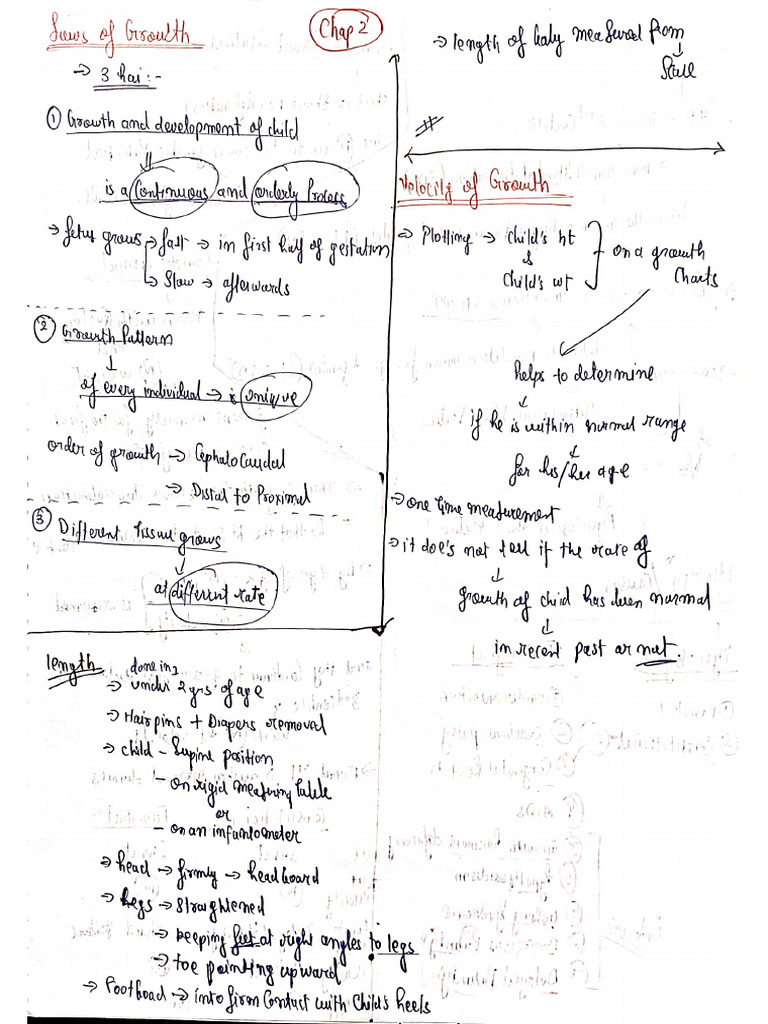 Laws of Growth
Chap 2
→ 3 hai :-
① Growth and development of child
is a Continuous and orderly Process
→ fetus grows → fast → in first half of gestation
→ Slow → afterwards
② Growth Pattern
↓
of every individual → is unique
order of growth → Cephalocaudal
→ Distal to Proximal
③ Different tissue grows
↓
at different rate
length
done in
→ under 2 yrs of age
→ Hairpins + Diapers removal
→ child - Supine position
- on rigid measuring table
or
- on an infantometer
→ head → firmly → head board
→ legs → straightened
→ keeping feet at right angles to legs
→ toe pointing upward
→ Footboad → into firm Contact with Child's heels
→ length of baby measured from
↓
Scale
#
Velocity of Growth
→ Plotting → Child's ht
&
Child's wt
on a growth
Charts
helps to determine
↓
if he is within normal range
↓
for his/her age
→ one time measurement
→ it doe's not tell if the rate of
↓
growth of child has been normal
↓
in recent past or not.